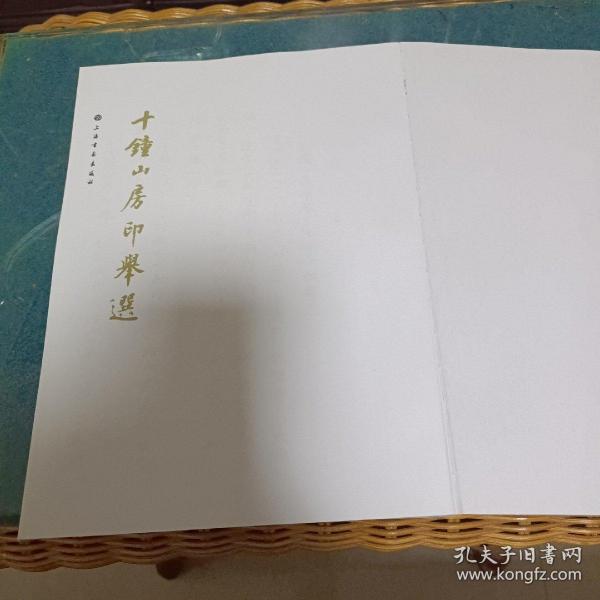 十鐘山房印舉選
上海書畫出版社
孔夫子旧书网
www.kongfz.com